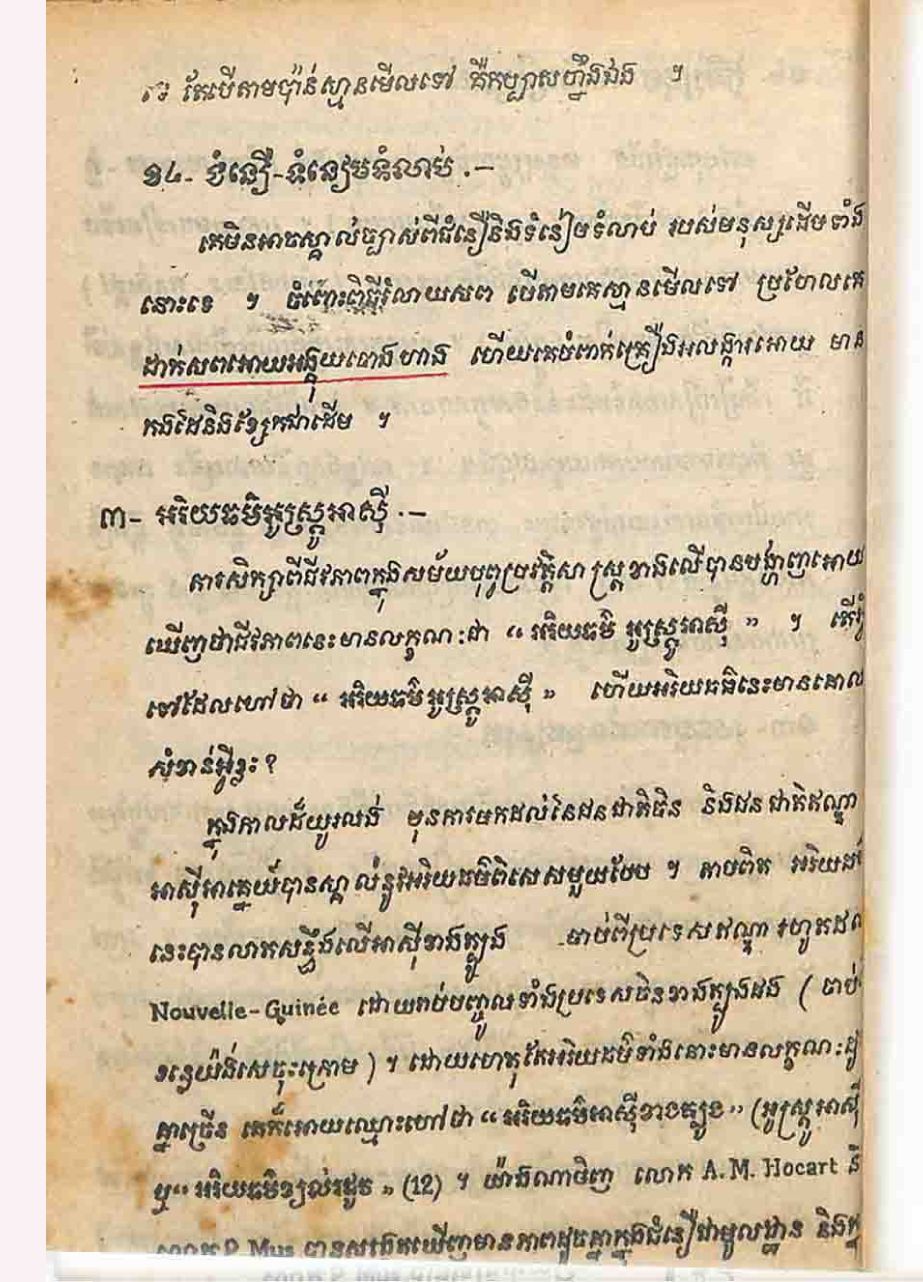 តែបើតាមប៉ាន់ស្មានមើលទៅ គឺកប្បាសហ្នឹងឯង ។
១៤- ជំនឿ-ទំនៀមទំលាប់ .–
គេមិនអាចស្គាល់ច្បាស់ពីជំនឿនិងទំនៀមទំលាប់ របស់មនុស្សដើមទាំង
នោះទេ ។ ចំពោះពិធីរំលាយសព បើតាមគេស្មានមើលទៅ ប្រហែលគេ
ដាក់សពអោយអង្គុយចោងហោង ហើយគេបំពាក់គ្រឿងអលង្ការអោយ មាន
កងដៃនិងខ្សែកជាដើម ។
៣- អរិយធម៌អូស្ត្រូអាស៊ី .–
ការសិក្សាពីជីវភាពក្នុងសម័យបុព្វប្រវត្តិសាស្ត្រខាងលើបានបង្ហាញអោយ
ឃើញថាជីវភាពនេះមានលក្ខណៈជា “ អរិយធម៌ អូស្ត្រូអាស៊ី ” ។ តើអ្វី
ទៅដែលហៅថា “ អរិយធម៌អូស្ត្រូអាស៊ី » ហើយអរិយធម៌នេះមានគោល
សំខាន់អ្វីខ្លះ ?
ក្នុងកាលដ៏យូរលង់ មុនការមកដល់នៃជនជាតិចិន និងជនជាតិឥណ្ឌា
អាស៊ីអាគ្នេយ៍បានស្គាល់នូវអរិយធម៌ពិសេសមួយបែប ។ តាមពិត អរិយធម៌
នេះបានលាតសន្ធឹងលើអាស៊ីខាងត្បូង ចាប់ពីប្រទេសឥណ្ឌា រហូតដល់
Nouvelle-Guinée ដោយរាប់បញ្ចូលទាំងប្រទេសចិនខាងត្បូងផង ( ចាប់ពី
ទន្លេយ៉ង់សេចុះក្រោម ) ។ ដោយហេតុតែអរិយធម៌ទាំងនោះមានលក្ខណៈដូច
គ្នាច្រើន គេក៏អោយឈ្មោះហៅថា “ អរិយធម៌អាស៊ីខាងត្បូង ” (អូស្ត្រូអាស៊ី
ឬ “ អរិយធម៌ខ្យល់រដូវ » (12) ។ យ៉ាងណាមិញ លោក A.M. Hocart និ
លោក P. Mus បានសង្កេតឃើញមានភាពដូចគ្នាក្នុងជំនឿជាមូលដ្ឋាន និងក្នុ